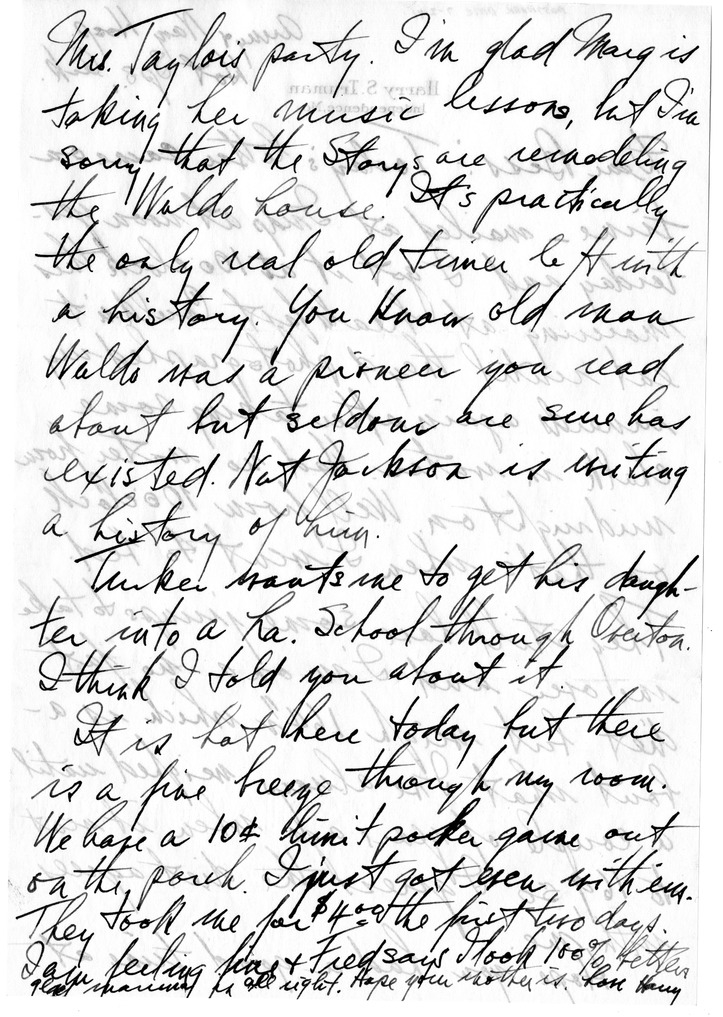 Mrs. Taylor's party. I'm glad Marg is
taking her music lessons, but I'm
sorry that the Storys are remodeling
the Waldo house. It's practically
the only real old timer left with
a history. You know old man
Waldo was a pioneer you read
about but seldom are sure has
existed. Nat Jackson is writing
a history of him.
Tucker wants me to get his daugh-
ter into a La. School through Overton.
I think I told you about it
It is hot here today but there
is a fine breeze through my room.
We have a 10¢ limit poker game out
on the porch. I just got even with em.
They took me for $4.00 the first two days.
I am feeling fine & Fred says I look 100% better.
mamma is all right. Hope your mother is. Love Harry
Harry S. Truman
Independence, Mo.